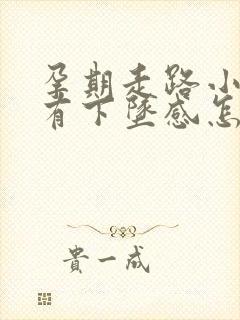 孕期走路小
有下墜感怎
貴一成